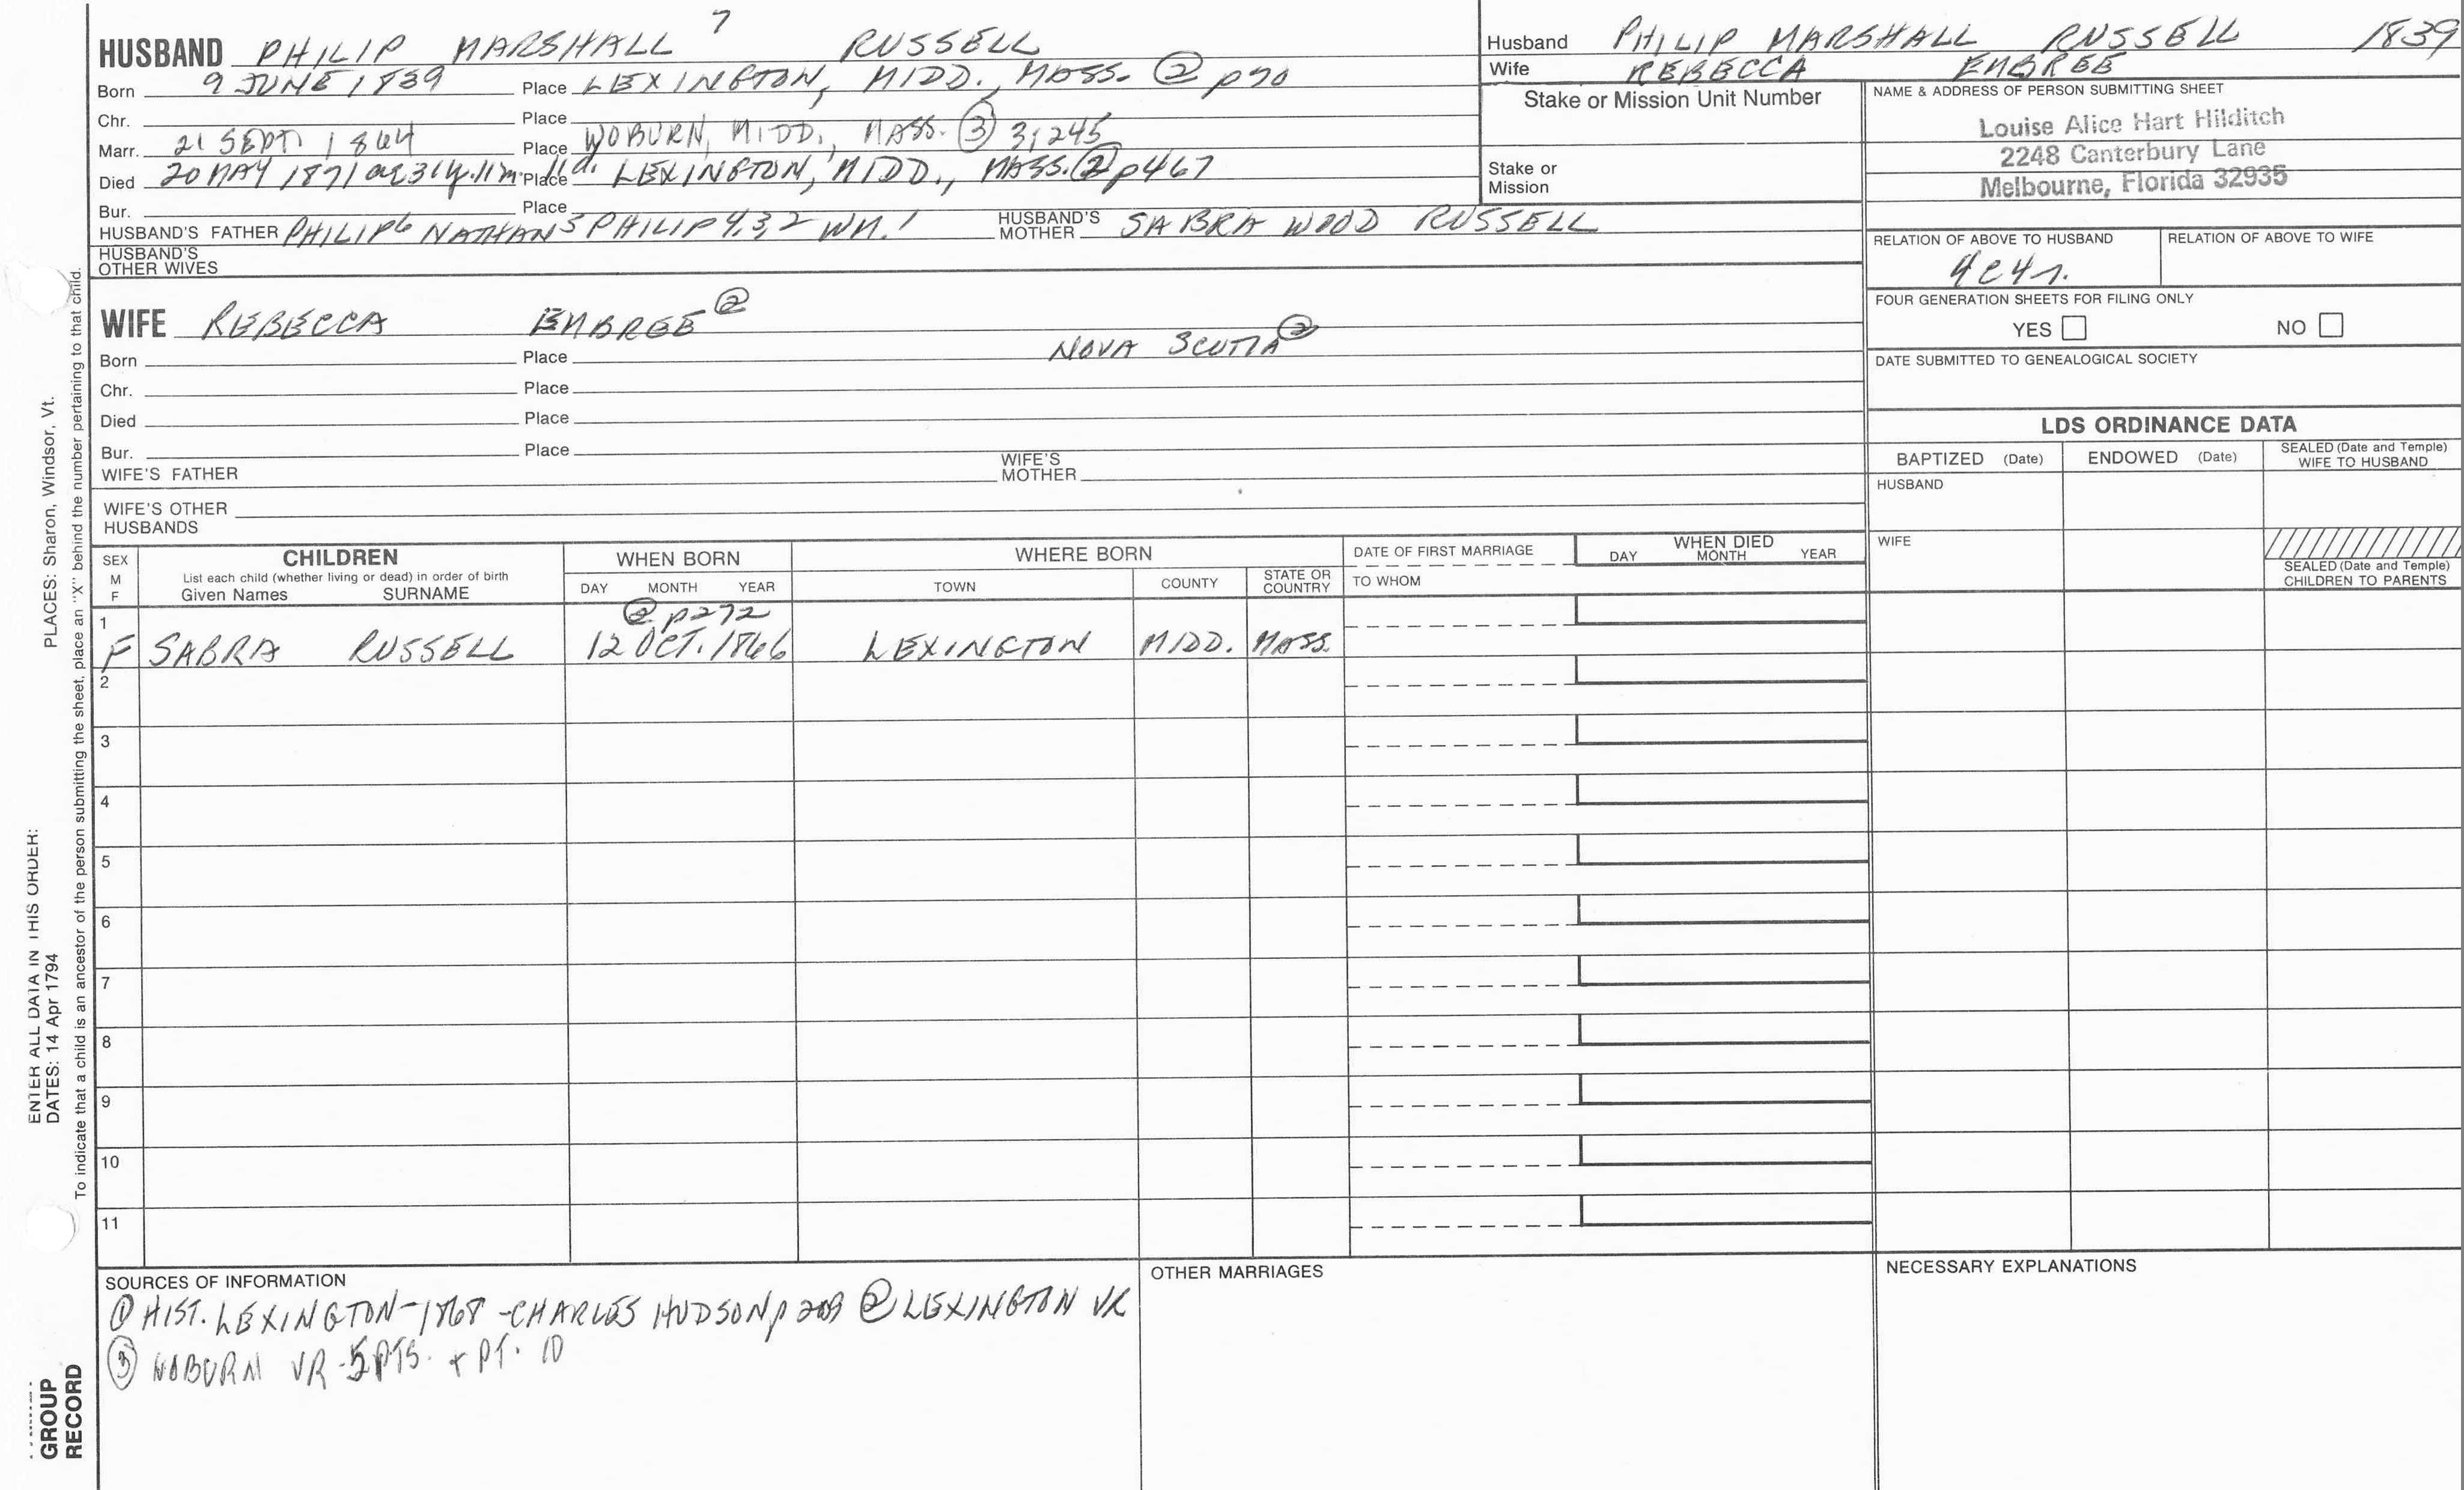 HUSBAND PHILIP MARSHALL 7 RUSSELL
Born 9 JUNE 1839 Place LEXINGTON, MIDD., MASS. ② p70
Chr. Place
Marr. 21 SEPT. 1864 Place WOBURN, MIDD., MASS. ③ 3;245
Died 20 MAY 1871 ae 31y. 11m. 11d. Place LEXINGTON, MIDD., MASS. ② p467
Bur. Place
HUSBAND'S FATHER PHILIP6 NATHAN5 PHILIP4,3,2 WM.1 HUSBAND'S MOTHER SABRA WOOD RUSSELL
HUSBAND'S OTHER WIVES
WIFE REBECCA EMBREE ②
Born Place NOVA SCOTIA ②
Chr. Place
Died Place
Bur. Place
WIFE'S FATHER WIFE'S MOTHER
WIFE'S OTHER HUSBANDS
Husband PHILIP MARSHALL RUSSELL 1839
Wife REBECCA EMBREE
Stake or Mission Unit Number
Stake or Mission
NAME & ADDRESS OF PERSON SUBMITTING SHEET
Louise Alice Hart Hilditch
2248 Canterbury Lane
Melbourne, Florida 32935
RELATION OF ABOVE TO HUSBAND RELATION OF ABOVE TO WIFE
4c4r.
FOUR GENERATION SHEETS FOR FILING ONLY
YES NO
DATE SUBMITTED TO GENEALOGICAL SOCIETY
LDS ORDINANCE DATA
BAPTIZED (Date) ENDOWED (Date) SEALED (Date and Temple) WIFE TO HUSBAND
HUSBAND
WIFE
SEALED (Date and Temple) CHILDREN TO PARENTS
SEX M F
CHILDREN
List each child (whether living or dead) in order of birth
Given Names SURNAME
WHEN BORN
DAY MONTH YEAR
WHERE BORN
TOWN COUNTY STATE OR COUNTRY
DATE OF FIRST MARRIAGE
TO WHOM
WHEN DIED
DAY MONTH YEAR
1 ② p272
F SABRA RUSSELL 12 OCT. 1866 LEXINGTON MIDD. MASS.
2
3
4
5
6
7
8
9
10
11
SOURCES OF INFORMATION
① HIST. LEXINGTON-1868-CHARLES HUDSON p 209 ② LEXINGTON VR
③ WOBURN VR-5PTS. + PT. 10
OTHER MARRIAGES
NECESSARY EXPLANATIONS
ENTER ALL DATA IN THIS ORDER:
DATES: 14 Apr 1794 PLACES: Sharon, Windsor, Vt.
To indicate that a child is an ancestor of the person submitting the sheet, place an "X" behind the number pertaining to that child.
GROUP
RECORD